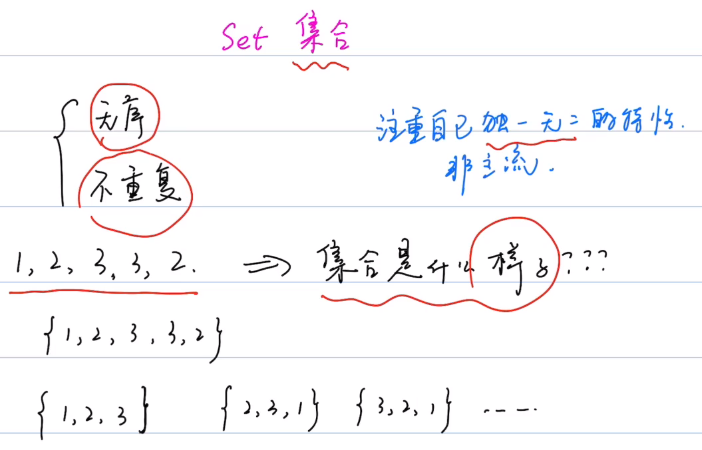 Set 集合
无序
不重复
注重自己独一无二的特性.
非主流.
1, 2, 3, 3, 2. ⇒ 集合是什么样子???
{1, 2, 3, 3, 2}
{1, 2, 3} {2, 3, 1} {3, 2, 1} ······